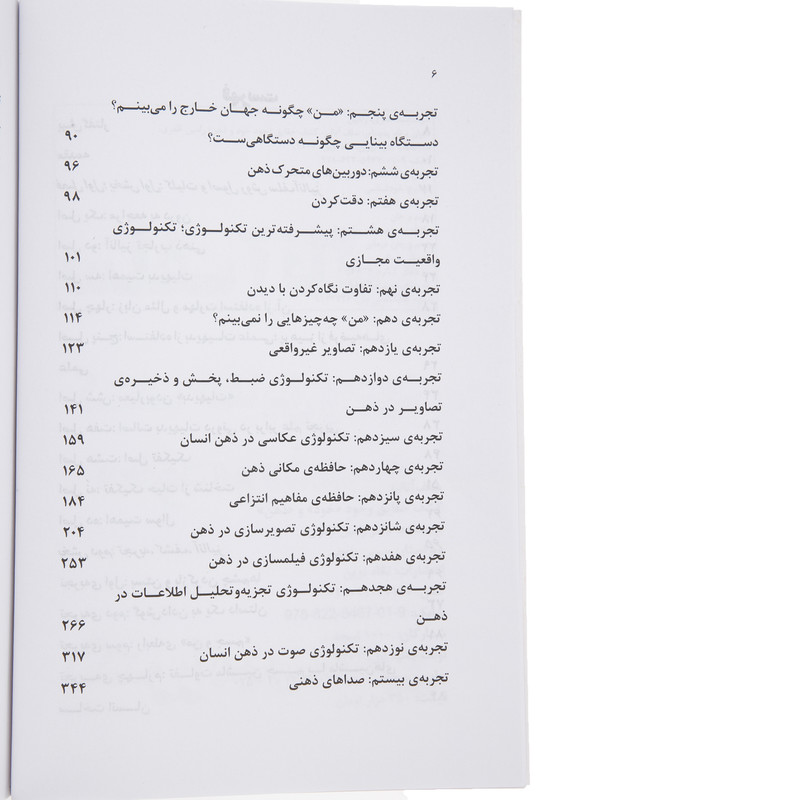 ۶
تجربه‌ی پنجم: «من» چگونه جهان خارج را می‌بینم؟
دستگاه بینایی چگونه دستگاهی‌ست؟ ۹۰
تجربه‌ی ششم: دوربین‌های متحرک ذهن ۹۶
تجربه‌ی هفتم: دقت‌کردن ۹۸
تجربه‌ی هشتم: پیشرفته‌ترین تکنولوژی؛ تکنولوژی
واقعیت مجازی ۱۰۱
تجربه‌ی نهم: تفاوت نگاه‌کردن با دیدن ۱۱۰
تجربه‌ی دهم: «من» چه‌چیزهایی را نمی‌بینم؟ ۱۱۴
تجربه‌ی یازدهم: تصاویر غیرواقعی ۱۲۳
تجربه‌ی دوازدهم: تکنولوژی ضبط، پخش و ذخیره‌ی
تصاویر در ذهن ۱۴۱
تجربه‌ی سیزدهم: تکنولوژی عکاسی در ذهن انسان ۱۵۹
تجربه‌ی چهاردهم: حافظه‌ی مکانی ذهن ۱۶۵
تجربه‌ی پانزدهم: حافظه‌ی مفاهیم انتزاعی ۱۸۴
تجربه‌ی شانزدهم: تکنولوژی تصویرسازی در ذهن ۲۰۴
تجربه‌ی هفدهم: تکنولوژی فیلمسازی در ذهن ۲۵۳
تجربه‌ی هجدهم: تکنولوژی تجزیه‌وتحلیل اطلاعات در
ذهن ۲۶۶
تجربه‌ی نوزدهم: تکنولوژی صوت در ذهن انسان ۳۱۷
تجربه‌ی بیستم: صداهای ذهنی ۳۴۴